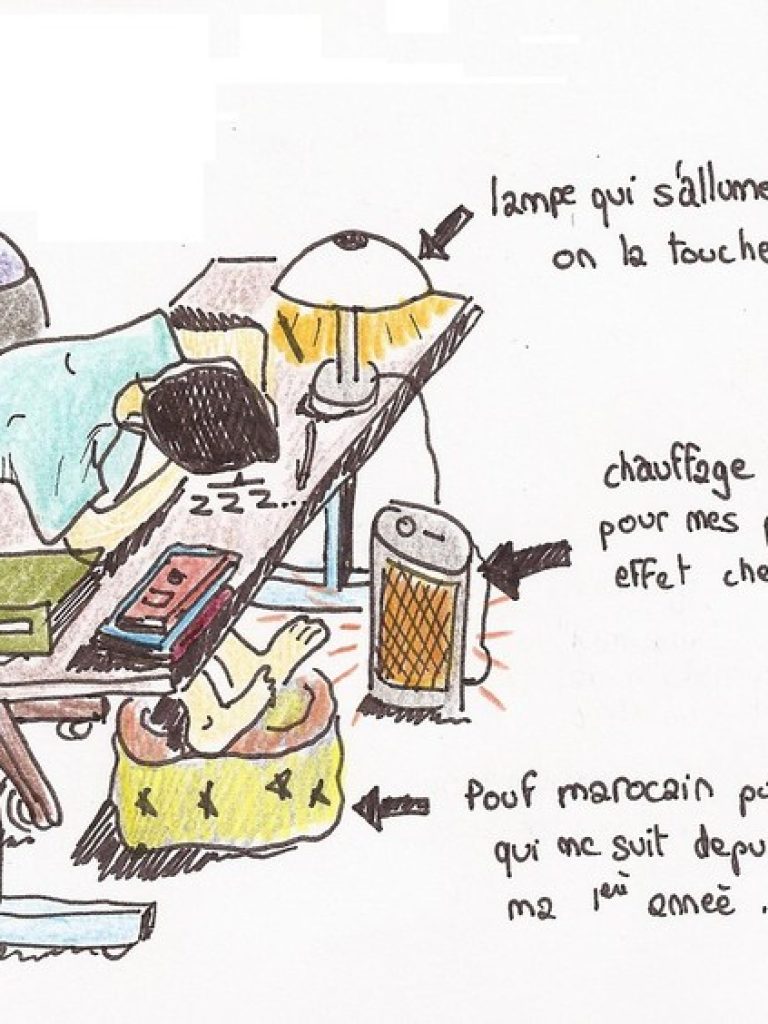 lampe qui s'allume
on la touche
zzz...
chauffage
pour mes
effet che
Pouf marocain
qui me suit depu
ma 1erè anneè .